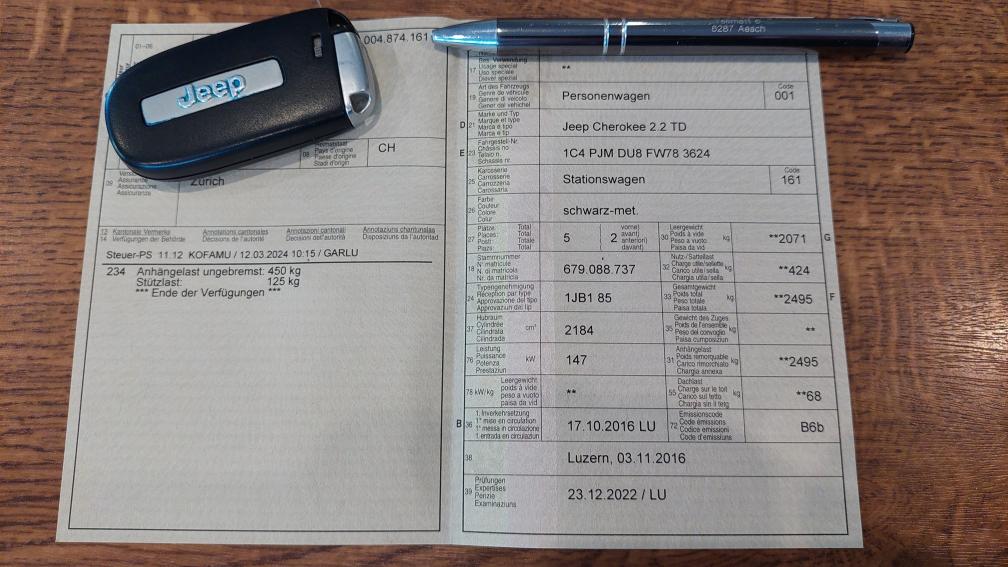 01-06
Jeep
004.874.161
6287 Aesch
Heimatstaat
08 Pays d'origine
Paese d'origine
Stadi d'origin
CH
09
Assurance
Assicurazione
Assicuranza
Zürich
13 Kantonale Vermerke Annotations cantonales Annotazioni cantonali Annotaziuns chantunalas
14 Verfügungen der Behörde Décisions de l'autorité Decisioni dell'autorità Disposiziuns da l'autoritad
Steuer-PS 11.12 KOFAMU / 12.03.2024 10:15 / GARLU
234 Anhängelast ungebremst: 450 kg
Stützlast: 125 kg
*** Ende der Verfügungen ***
Bes. Verwendung
17 Usage spécial
Uso speciale
Diever spezial
**
19 Art des Fahrzeugs
Genre de véhicule
Genere di veicolo
Gener dal vehichel
Personenwagen
Code
001
D 21 Marke und Typ
Marque et type
Marca e tipo
Marca e tip
Jeep Cherokee 2.2 TD
E 23 Fahrgestell-Nr.
Châssis no
Telaio n.
Schassis nr.
1C4 PJM DU8 FW78 3624
25 Karosserie
Carrosserie
Carrozzeria
Carossaria
Stationswagen
Code
161
26 Farbe
Couleur
Colore
Colur
schwarz-met.
27 Plätze: Total
Places: Total
Posti: Totale
Plazs: Total
5
2
vorne)
avant)
anteriori)
davant)
30 Leergewicht
Poids à vide
Peso a vuoto
Paisa da vid
kg
**2071
G
18 Stammnummer
N° matricule
N. di matricola
Nr. da matricla
679.088.737
32 Nutz-/Sattellast
Charge utile/sellette
Carico utile/sella
Chargia utila/sella
kg
**424
24 Typengenehmigung
Réception par type
Approvazione del tipo
Approvaziun dal tip
1JB1 85
33 Gesamtgewicht
Poids total
Peso totale
Paisa totala
kg
**2495
F
37 Hubraum
Cylindrée
Cilindrata
Cilindrada
cm³
2184
35 Gewicht des Zuges
Poids de l'ensemble
Peso del convoglio
Paisa cumposiziun
kg
**
76 Leistung
Puissance
Potenza
Prestaziun
kW
147
31 Anhängelast
Poids remorquable
Carico rimorchiato
Chargia annexa
kg
**2495
78 kW/kg
Leergewicht
poids à vide
peso a vuoto
paisa da vid
**
55 Dachlast
Charge sur le toit
Carico sul tetto
Chargia sin il tetg
kg
**68
B 36 1. Inverkehrsetzung
1re mise en circulation
1a messa in circolazione
1. entrada en circulaziun
17.10.2016 LU
72 Emissionscode
Code émissions
Codice emissioni
Code d'emissiuns
B6b
38
Luzern, 03.11.2016
39 Prüfungen
Expertises
Perizie
Examinaziuns
23.12.2022 / LU